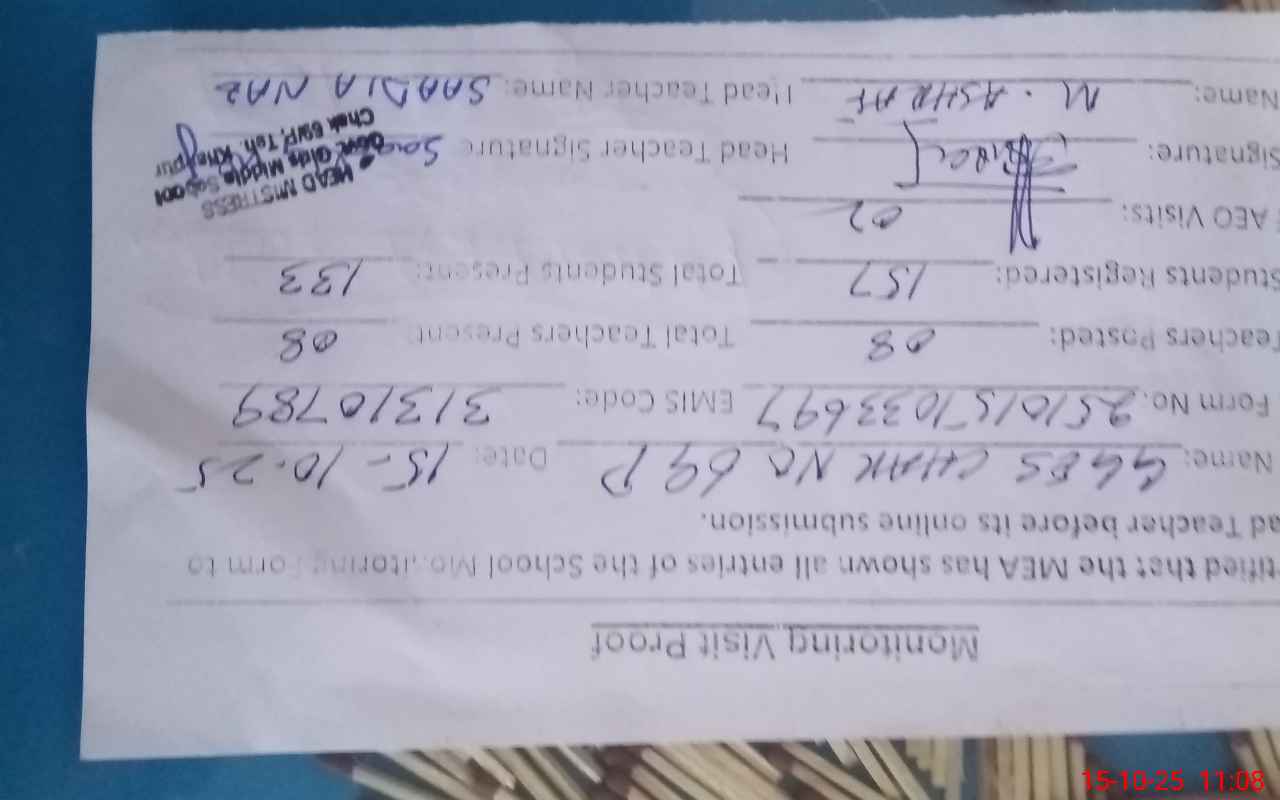 Monitoring Visit Proof
tified that the MEA has shown all entries of the School Monitoring Form to
ad Teacher before its online submission.
Name: GGES CHAK NO 69 P Date: 15-10-25
Form No. 2510151033697 EMIS Code: 31310789
Teachers Posted: 08 Total Teachers Present: 08
Students Registered: 157 Total Students Present: 133
AEO Visits: 02
Signature: Head Teacher Signature
Name: M. ASHRAF Head Teacher Name: SAADIA NAZ
HEAD MISTRESS
Govt. Girls Middle School
Chak 69/P, Teh. Khanpur
15-10-25 11:08